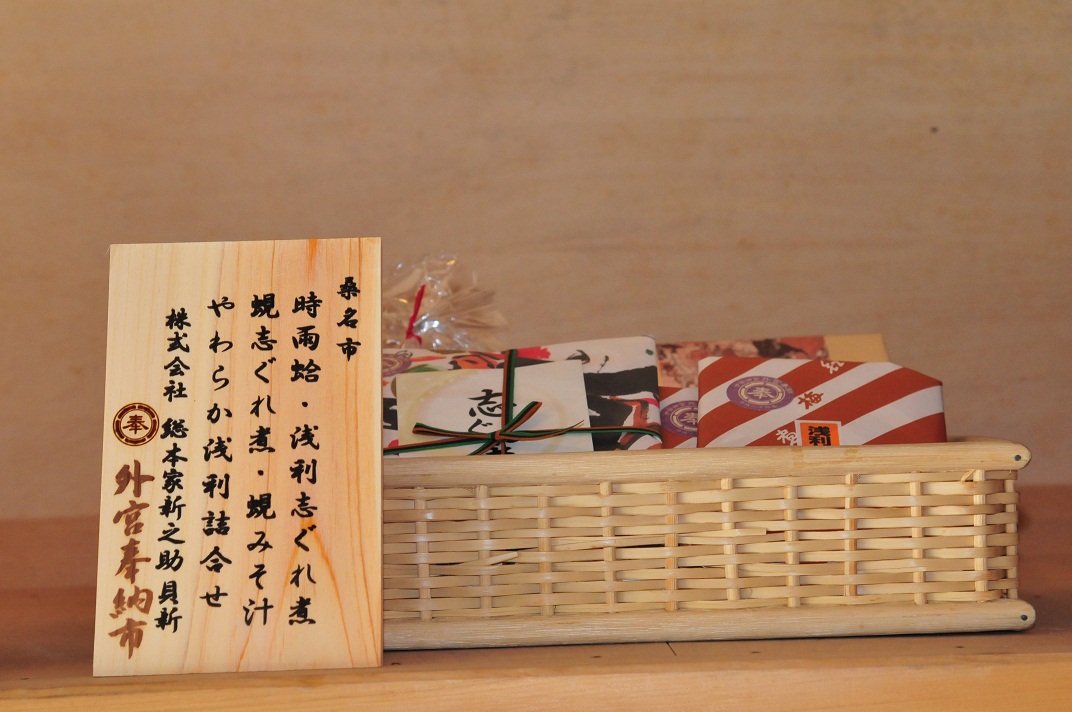 桑名市
時雨蛤・浅利志ぐれ煮
蜆志ぐれ煮・蜆みそ汁
やわらか浅利詰合せ
株式会社 総本家新之助貝新
奉
外宮奉納市
志ぐ
奉
奉
浅利